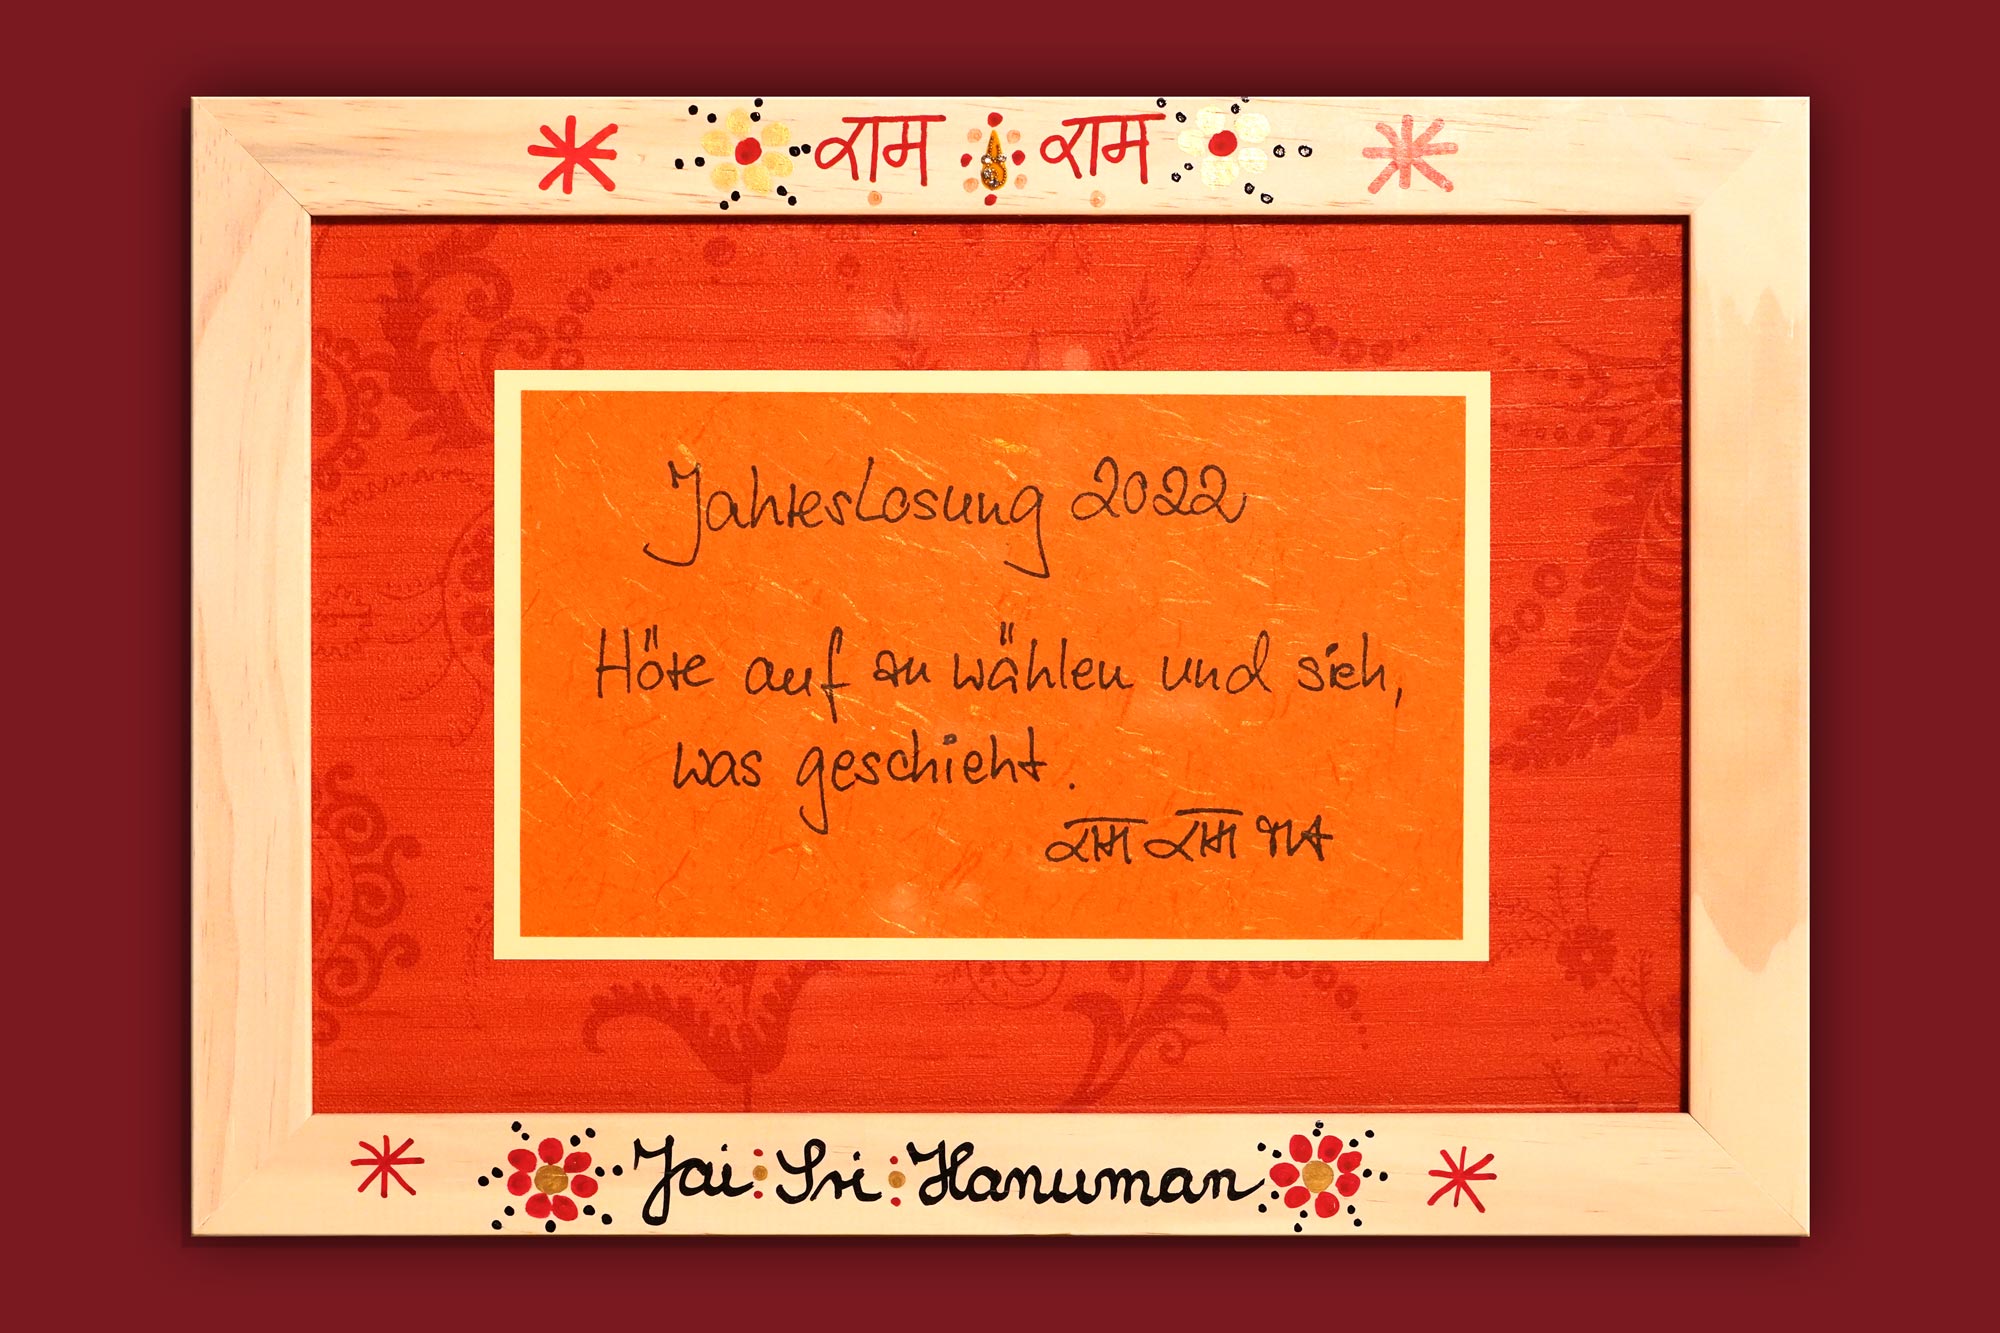 राम राम
Jahreslosung 2022
Höre auf zu wählen und sieh,
was geschieht.
राम राम
Jai Sri Hanuman